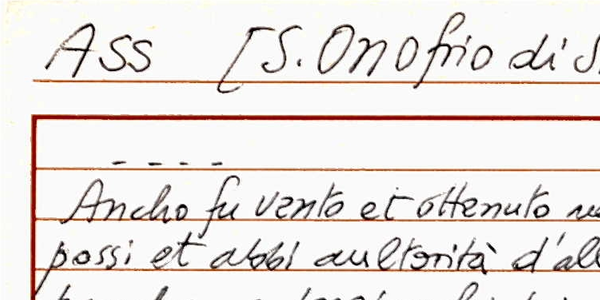 Ass [S. Onofrio di S.
- - - -
Ancho fu vento et ottenuto
possi et abbi aultorità d'all